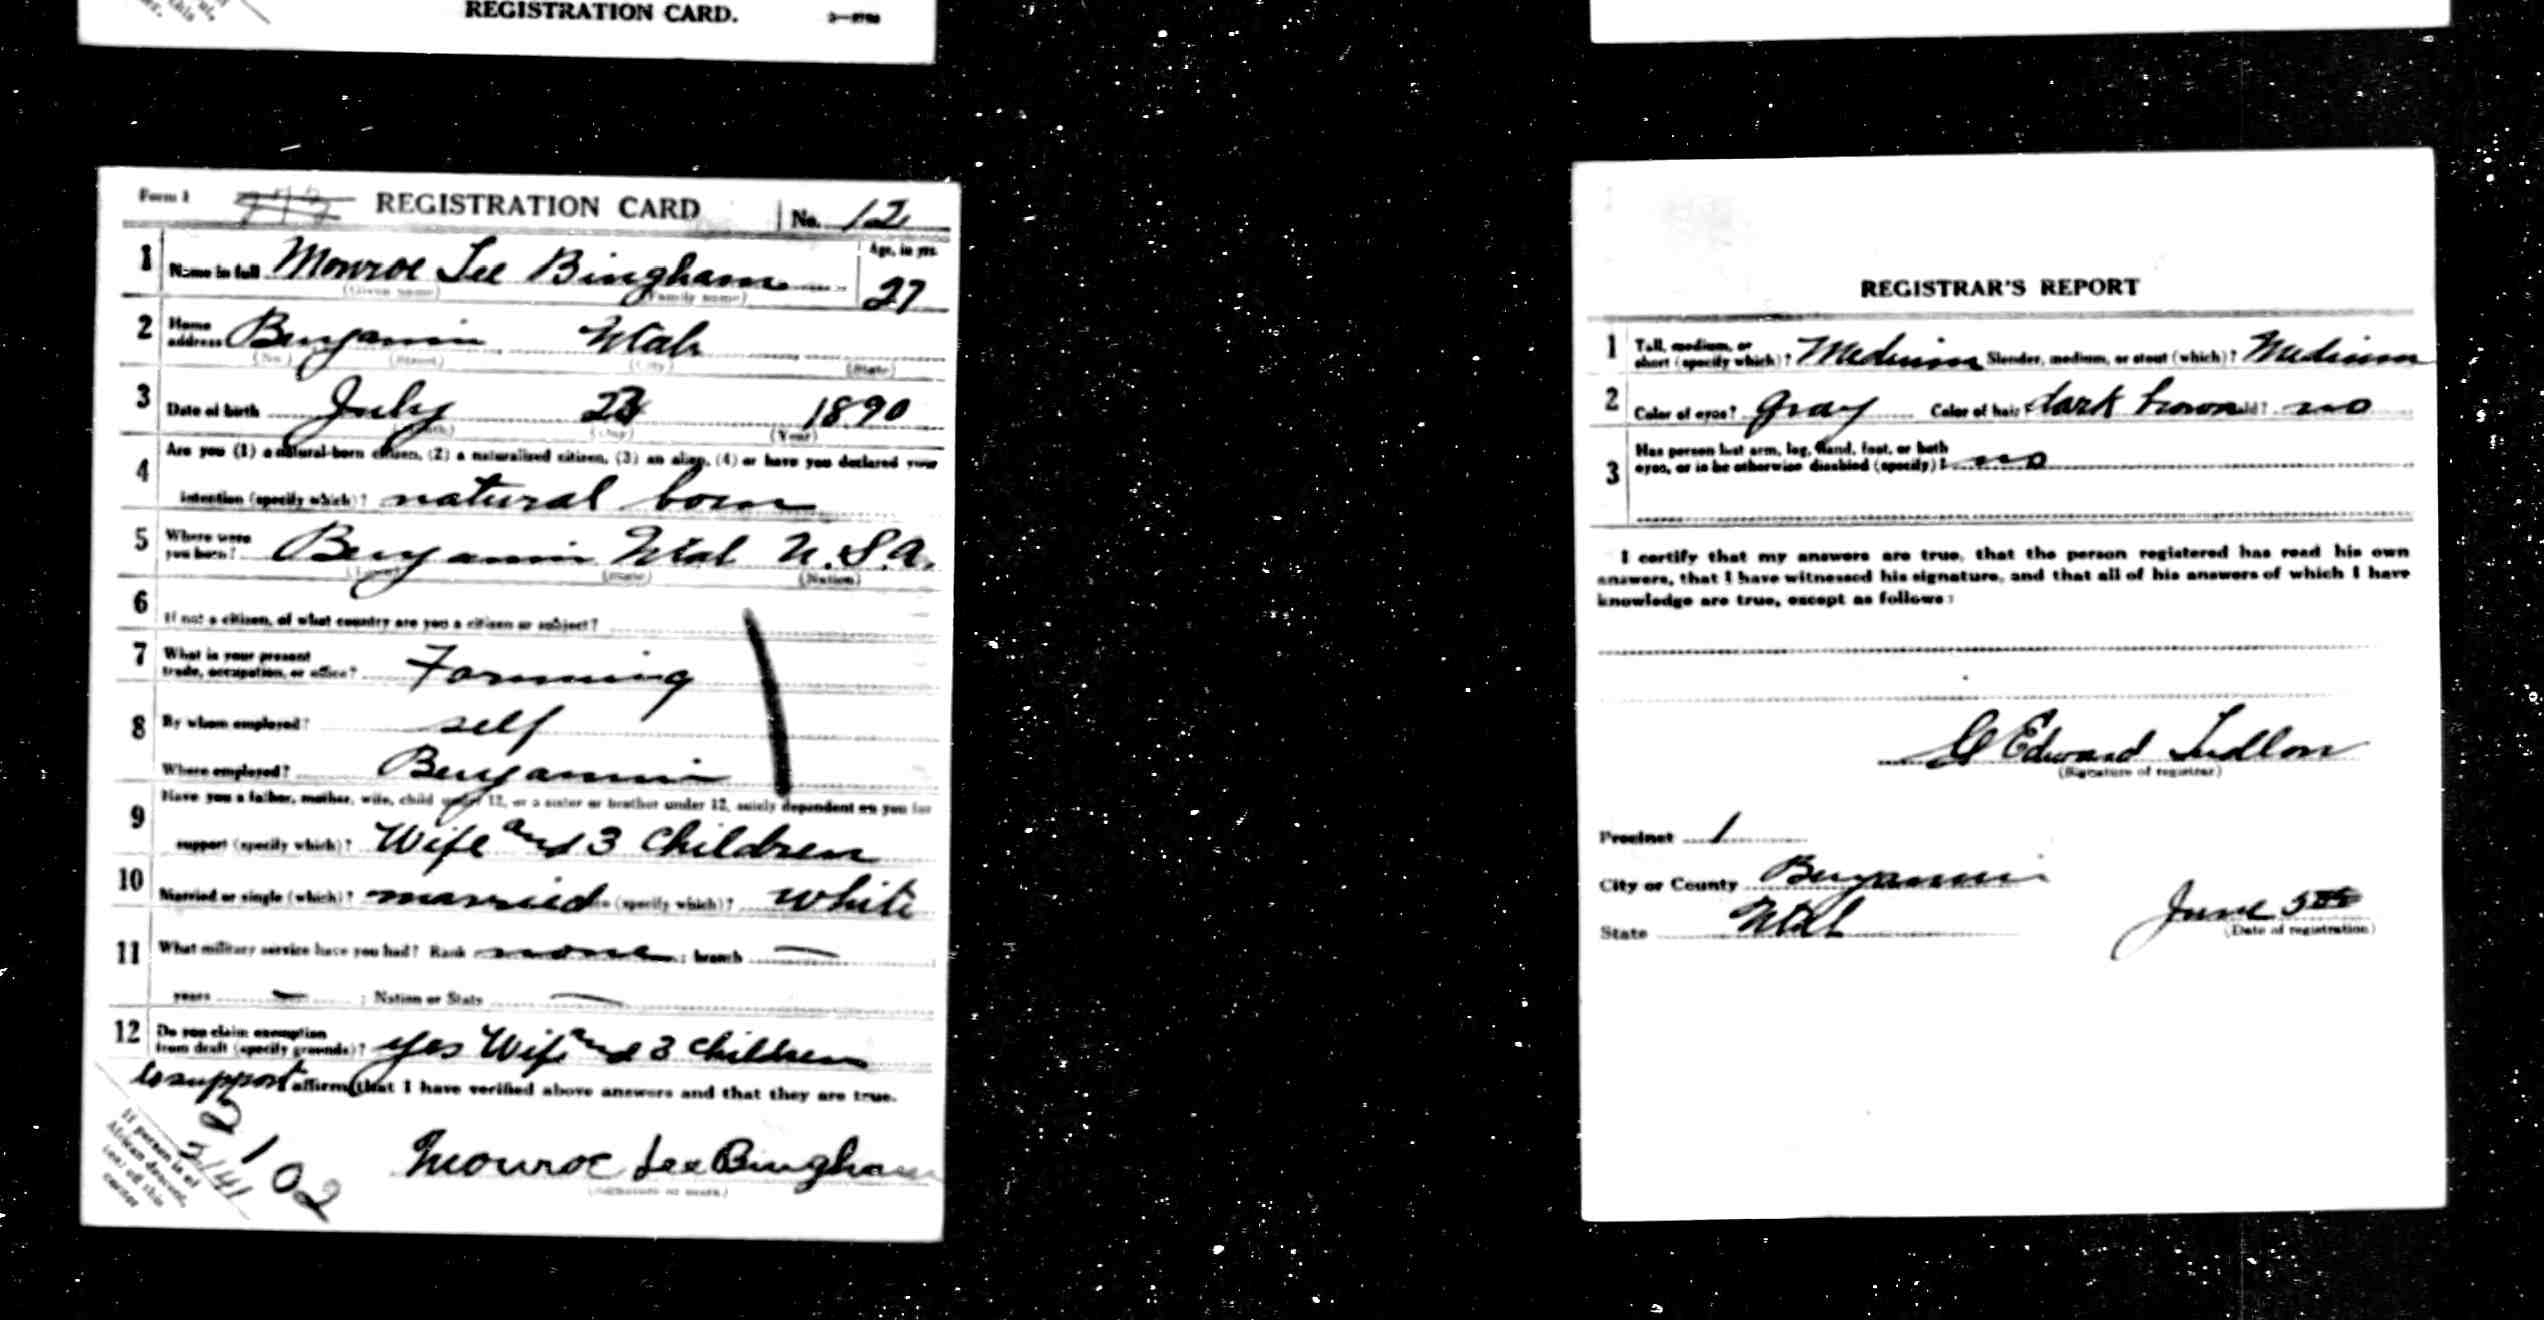 REGISTRATION CARD.
Form 1 REGISTRATION CARD No. 12
Age, in yrs.
1 Name in full Monroe Lee Bingham 27
(Given name) (Family name)
2 Home address Benjamin Utah
(No.) (Street) (City) (State)
3 Date of birth July 1890
(Month) (Day) (Year)
4 Are you (1) a natural-born citizen, (2) a naturalized citizen, (3) an alien, (4) or have you declared your
intention (specify which)? natural born
5 Where were you born? Benjamin Utah U.S.A.
(Town) (State) (Nation)
6 If not a citizen, of what country are you a citizen or subject?
7 What is your present trade, occupation, or office? Farming
8 By whom employed? self
Where employed? Benjamin
9 Have you a father, mother, wife, child under 12, or a sister or brother under 12, solely dependent on you for
support (specify which)? Wife and 3 children
10 Married or single (which)? married (specify which)? white
11 What military service have you had? Rank none ; branch —
years — ; Nation or State —
12 Do you claim exemption from draft (specify grounds)? yes Wife and 3 children
to support affirm that I have verified above answers and that they are true.
Monroe Lee Bingham
(Signature or mark)
If person is of
African descent,
tear off this
corner
REGISTRAR'S REPORT
1 Tall, medium, or short (specify which)? Medium Slender, medium, or stout (which)? Medium
2 Color of eyes? gray Color of hair? dark brown no
3 Has person lost arm, leg, hand, foot, or both
eyes, or is he otherwise disabled (specify)? no
I certify that my answers are true, that the person registered has read his own
answers, that I have witnessed his signature, and that all of his answers of which I have
knowledge are true, except as follows:
Edward Ludlow
(Signature of registrar)
Precinct 1
City or County Benjamin
State Utah
June 5th
(Date of registration)